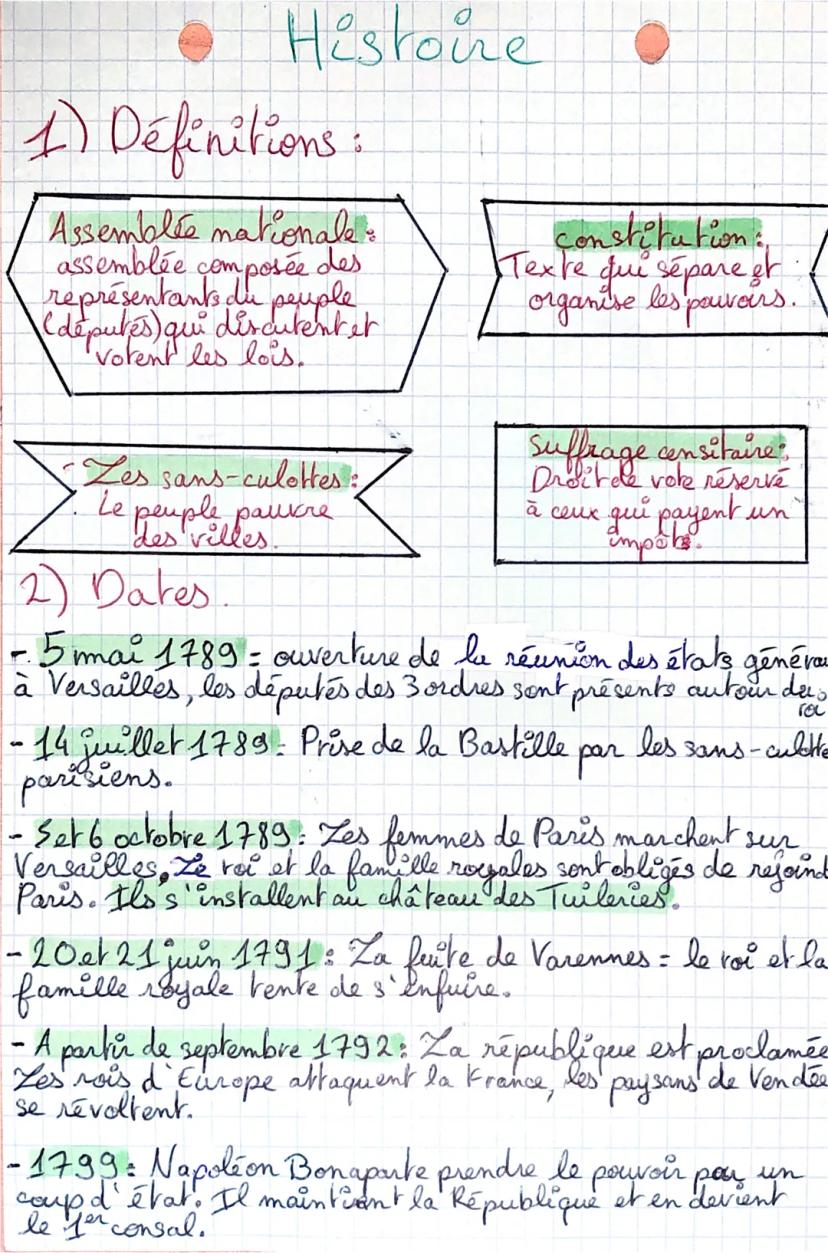 Histoire
1) Définitions :
Assemblée nationale :
assemblée composée des
représentants du peuple
(députés) qui discutent et
votent les lois.
constitution :
Texte qui sépare et
organise les pouvoirs.
- Les sans-culottes :
Le peuple pauvre
des villes.
Suffrage censitaire :
Droit de vote réservé
à ceux qui payent un
impôt.
2) Dates.
- 5 mai 1789 = ouverture de la réunion des états générau
à Versailles, les députés des 3 ordres sont présents autour du
roi
- 14 juillet 1789 : Prise de la Bastille par les sans-culotte
parisiens.
- 5 et 6 octobre 1789 : Les femmes de Paris marchent sur
Versailles. Le roi et la famille royales sont obligés de rejoind
Paris. Ils s'installent au château des Tuileries.
- 20 et 21 juin 1791 : La fuite de Varennes = le roi et la
famille royale tente de s'enfuire.
- A partir de septembre 1792 : La république est proclamée
Les rois d'Europe attaquent la France, les paysans de Vendée
se révoltent.
- 1799 : Napoléon Bonaparte prendre le pouvoir par un
coup d'état. Il maintiant la République et en devient
le 1er consal.